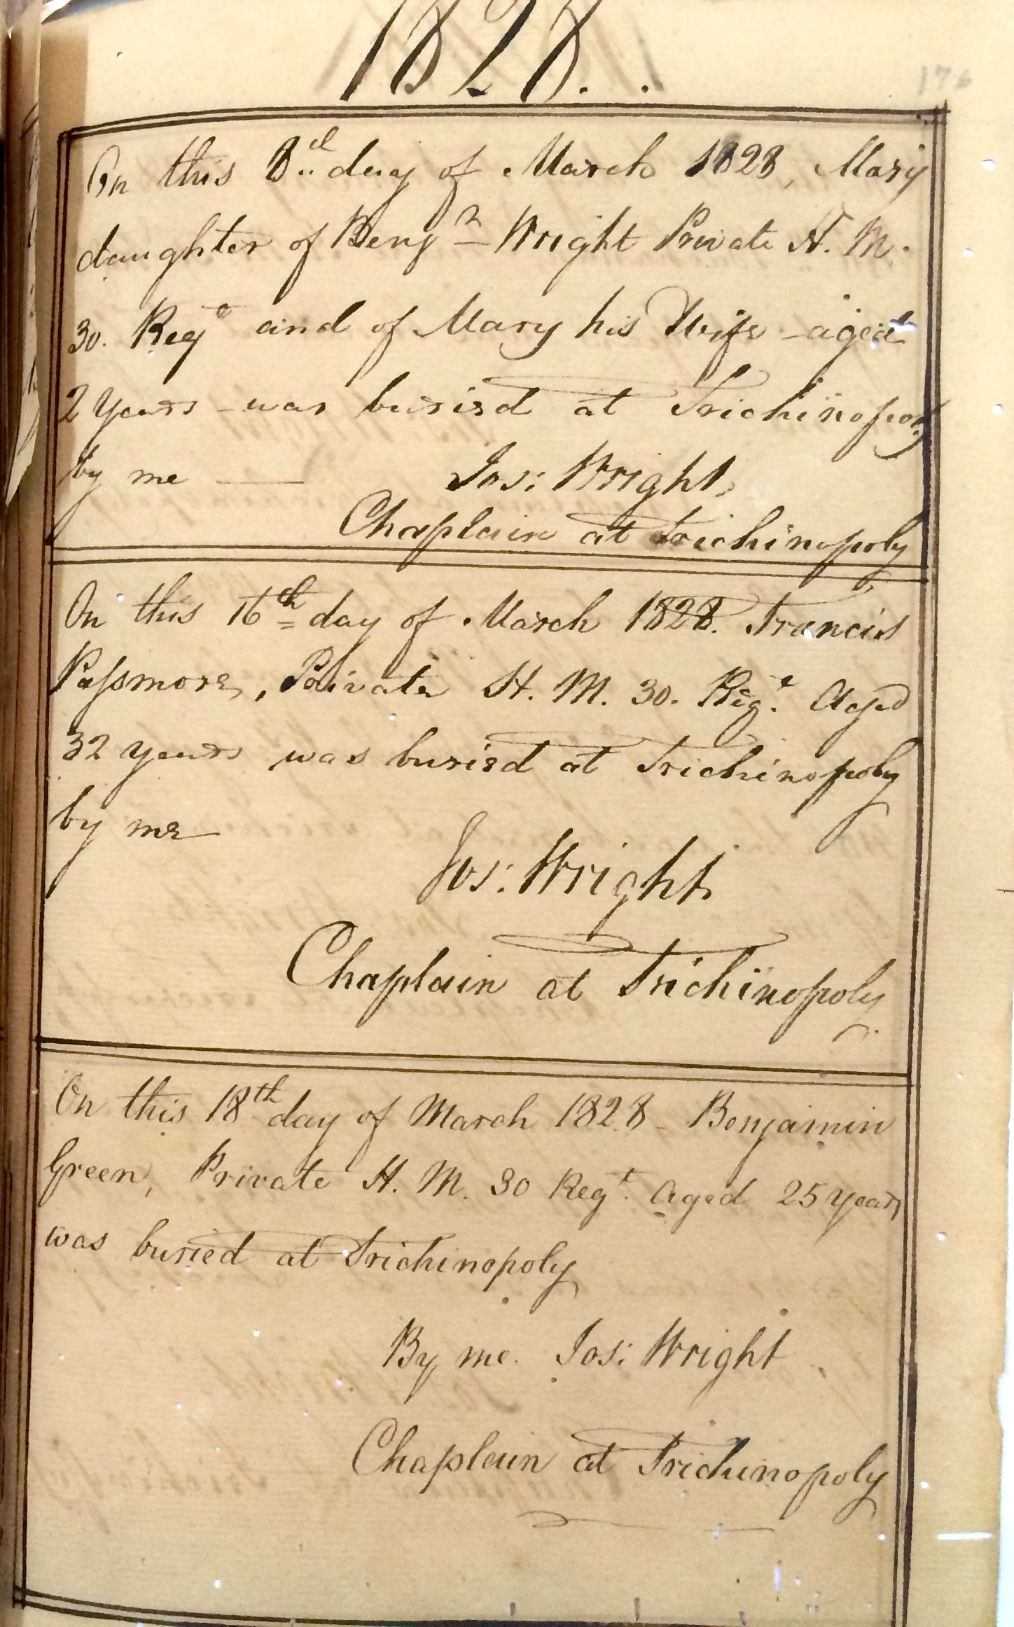 1828.
On this 8th day of March 1828, Mary
daughter of Benjn Wright Private H. M.
30. Regt and of Mary his Wife aged
2 Years was buried at Trichinopoly
by me
Jos: Wright,
Chaplain at Trichinopoly
On this 16th day of March 1828. Francis
Passmore, Private H. M. 30. Regt. Aged
32 years was buried at Trichinopoly
by me
Jos: Wright.
Chaplain at Trichinopoly
On this 18th day of March 1828 - Benjamin
Green, Private H. M. 30 Regt. aged 25 years
was buried at Trichinopoly
By me. Jos: Wright
Chaplain at Trichinopoly